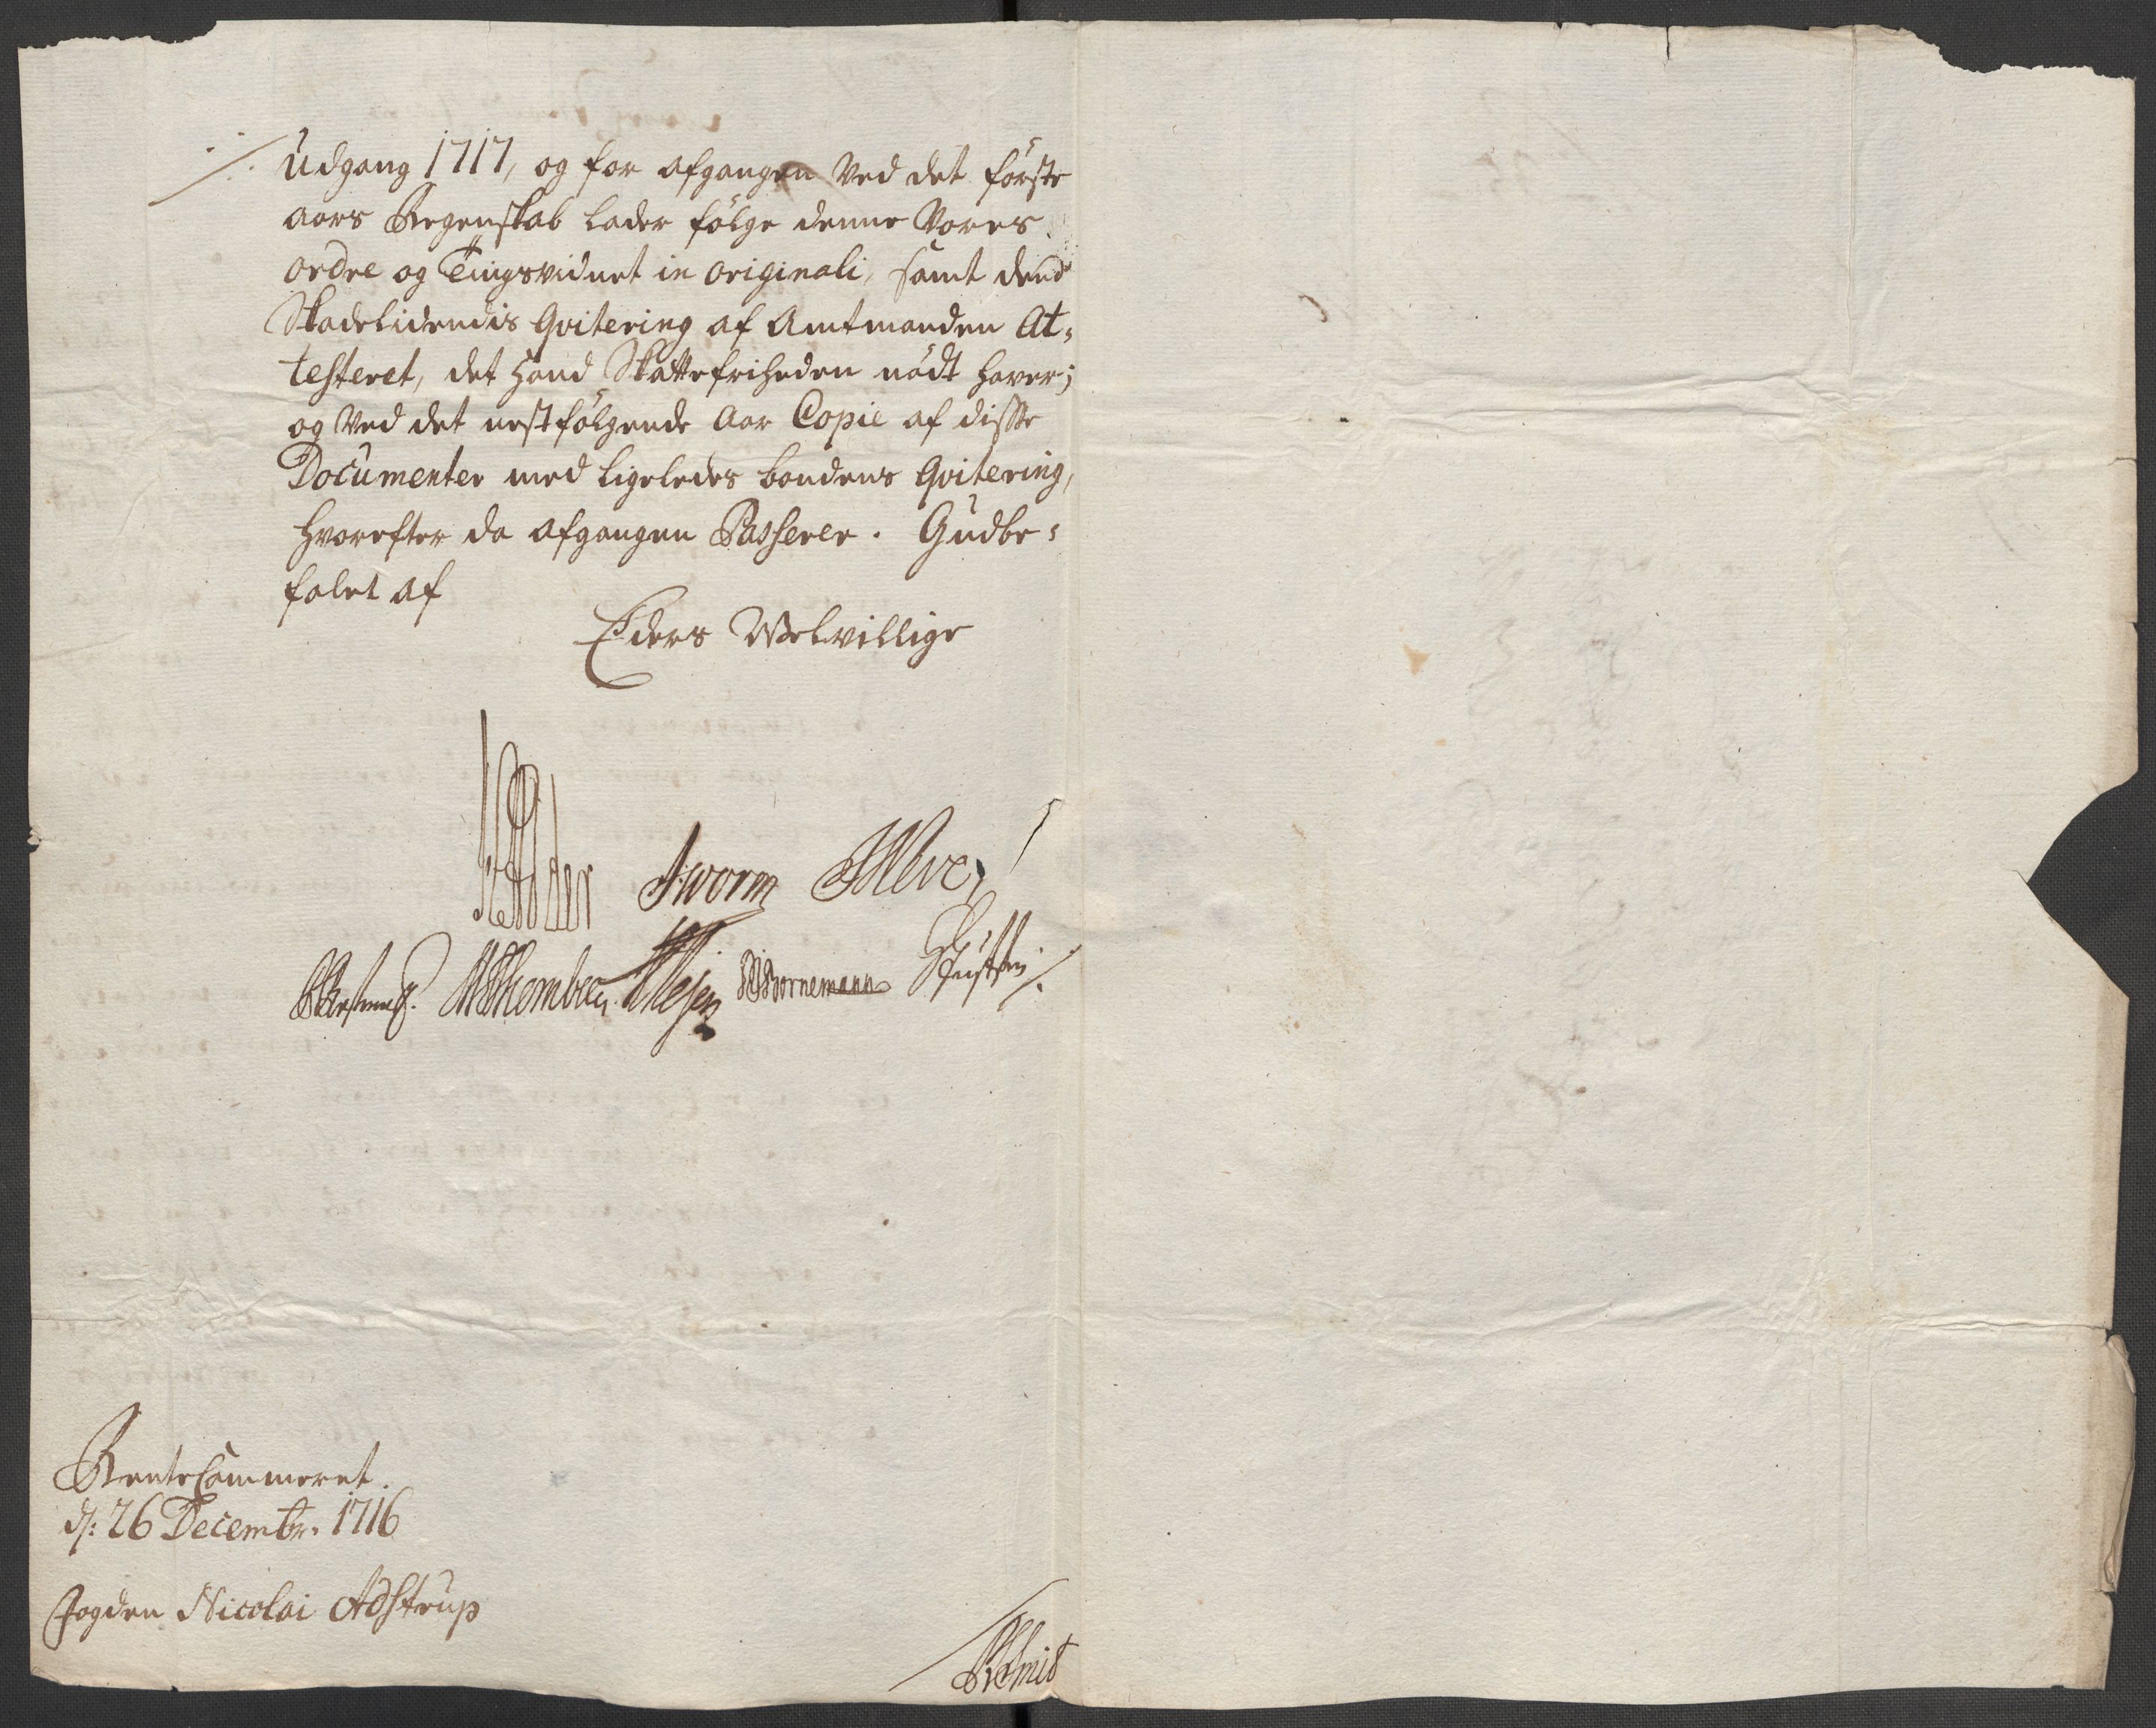 Udgang 1717, og for afgangen Ved det förste
aars Regenskab lader fölge denne Vores
ordre og Tingsvidnet in originali, samt dend
Skadelidendis Qvitering af Amtmanden At-
testeret, det hand Skattefriheden nödt haver;
og Ved det nestfölgende Aar Copie af disse
Documenter med ligeledes bondens Qvitering,
hvorefter da afgangen Passerer. Gudbe-
falet af
Eders Velvillige
JWorm
Bornemann
RenteCammeret.
d: 26 Decembr. 1716
Fogden Nicolai Adstrup